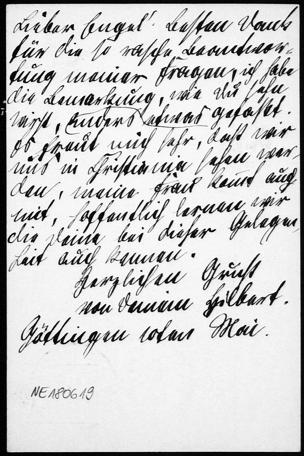 Lieber Engel! Besten Dank
für die so rasche Beantwor-
tung meiner Fragen, ich habe
die Bemerkung, wie Du sehn
wirst, anders etwas gefasst.
Es freut mich sehr, dass wir
uns in Christiania sehen wer-
den, meine Frau kommt auch
mit, hoffentlich lernen wir
die Deine bei dieser Gelegen-
heit auch kennen.
Herzlichen Gruss
von Deinem Hilbert.
Göttingen 10ten Mai.
NE180619